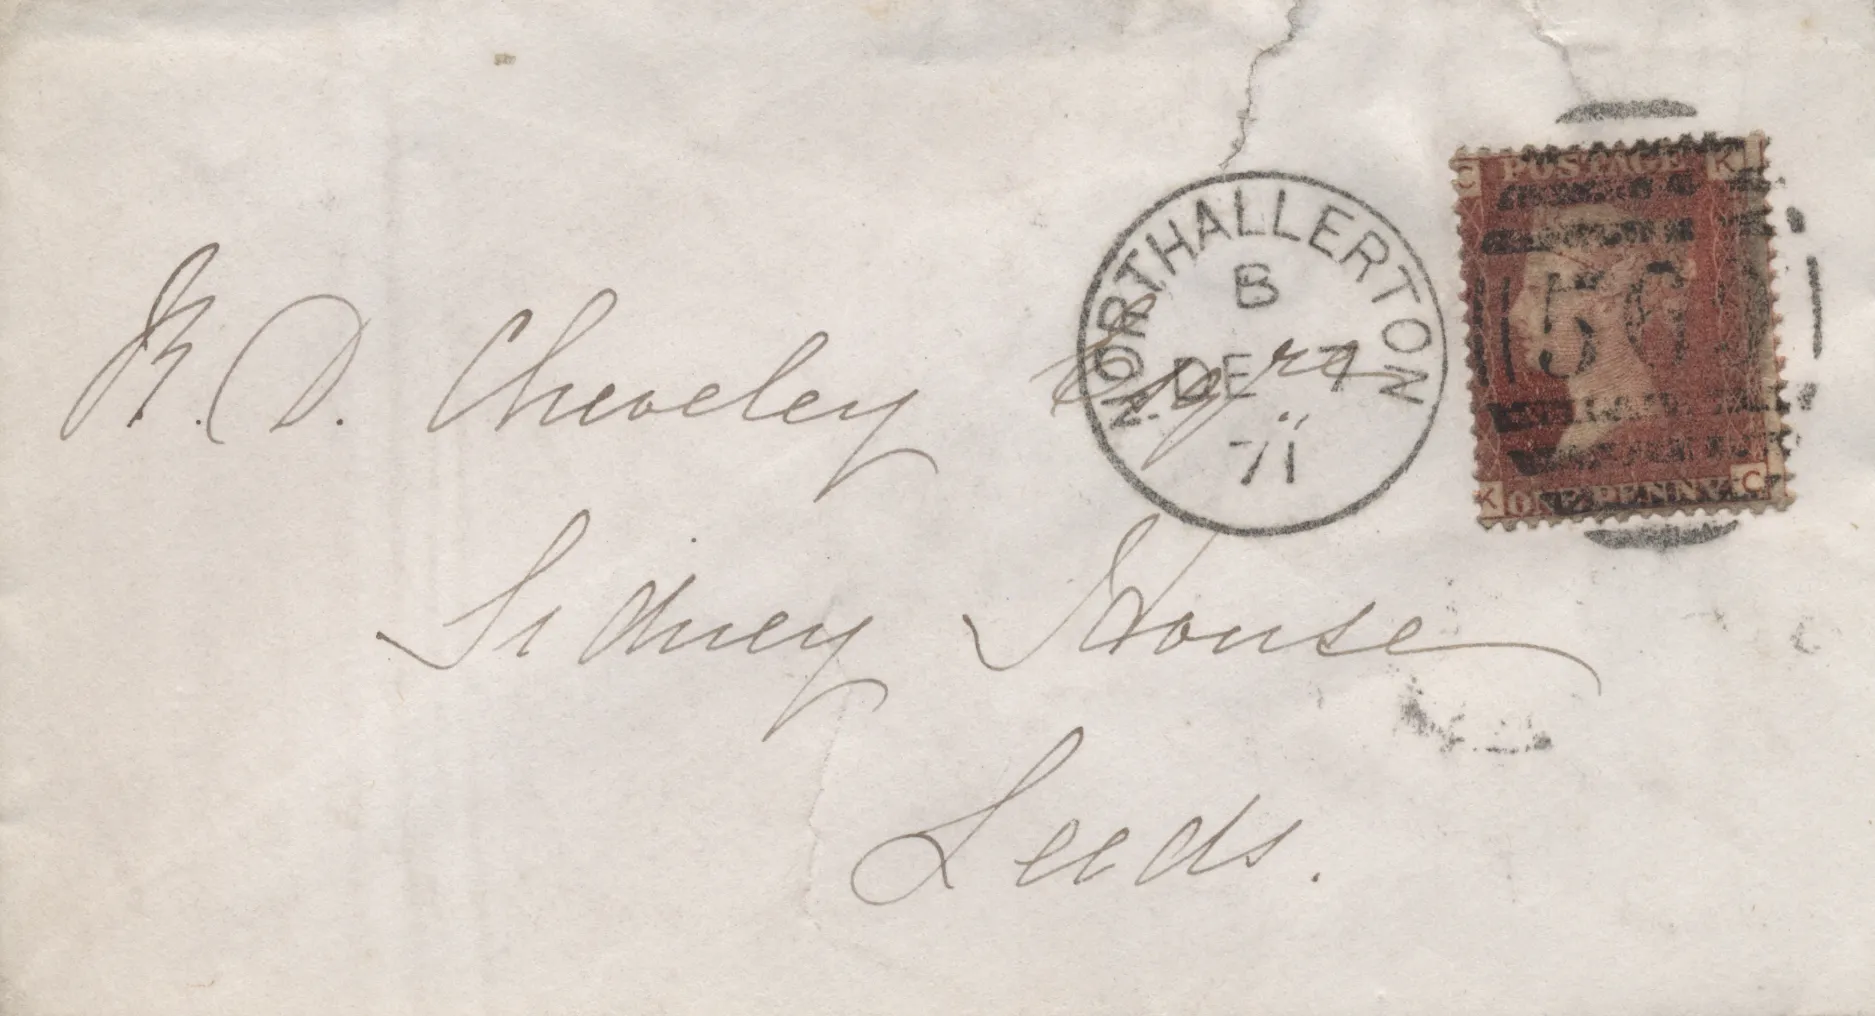 NORTHALLERTON
B
DE 7
71
C POSTAGE K
K ONE PENNY C
R. D. Cheveley Esqre
Sidney House
Leeds.